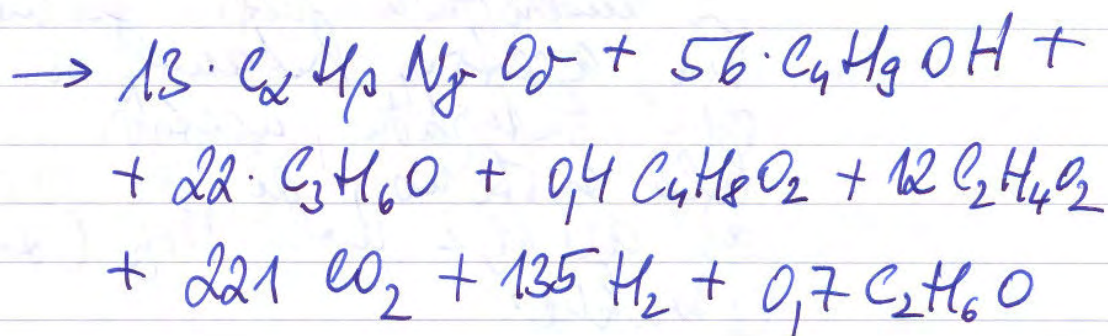 → 13 · CαHβNγOδ + 56 · C₄H₉OH +
+ 22 · C₃H₆O + 0,4 C₄H₈O₂ + 12 C₂H₄O₂
+ 221 CO₂ + 135 H₂ + 0,7 C₂H₆O